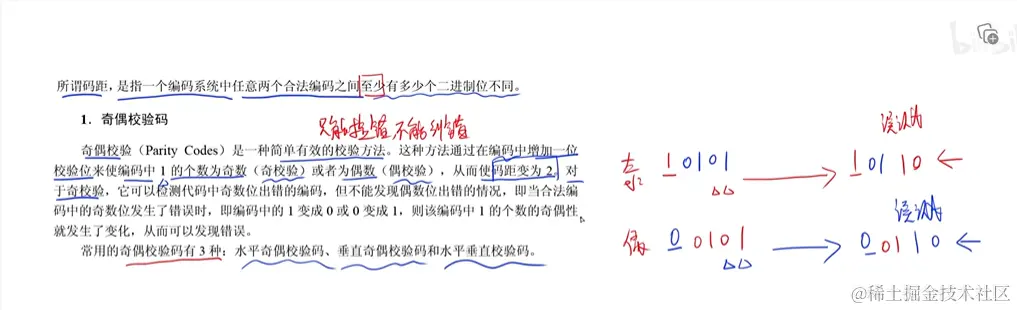 所谓码距，是指一个编码系统中任意两个合法编码之间至少有多少个二进制位不同。
1．奇偶校验码
只能检错不能纠错
奇偶校验（Parity Codes）是一种简单有效的校验方法。这种方法通过在编码中增加一位
校验位来使编码中 1 的个数为奇数（奇校验）或者为偶数（偶校验），从而使码距变为 2。对
于奇校验，它可以检测代码中奇数位出错的编码，但不能发现偶数位出错的情况，即当合法编
码中的奇数位发生了错误时，即编码中的 1 变成 0 或 0 变成 1，则该编码中 1 的个数的奇偶性
就发生了变化，从而可以发现错误。
常用的奇偶校验码有 3 种：水平奇偶校验码、垂直奇偶校验码和水平垂直校验码。
误认为
奇 1 0 1 0 1 → 1 0 1 1 0 ←
误认为
偶 0 0 1 0 1 → 0 0 1 1 0 ←
@稀土掘金技术社区